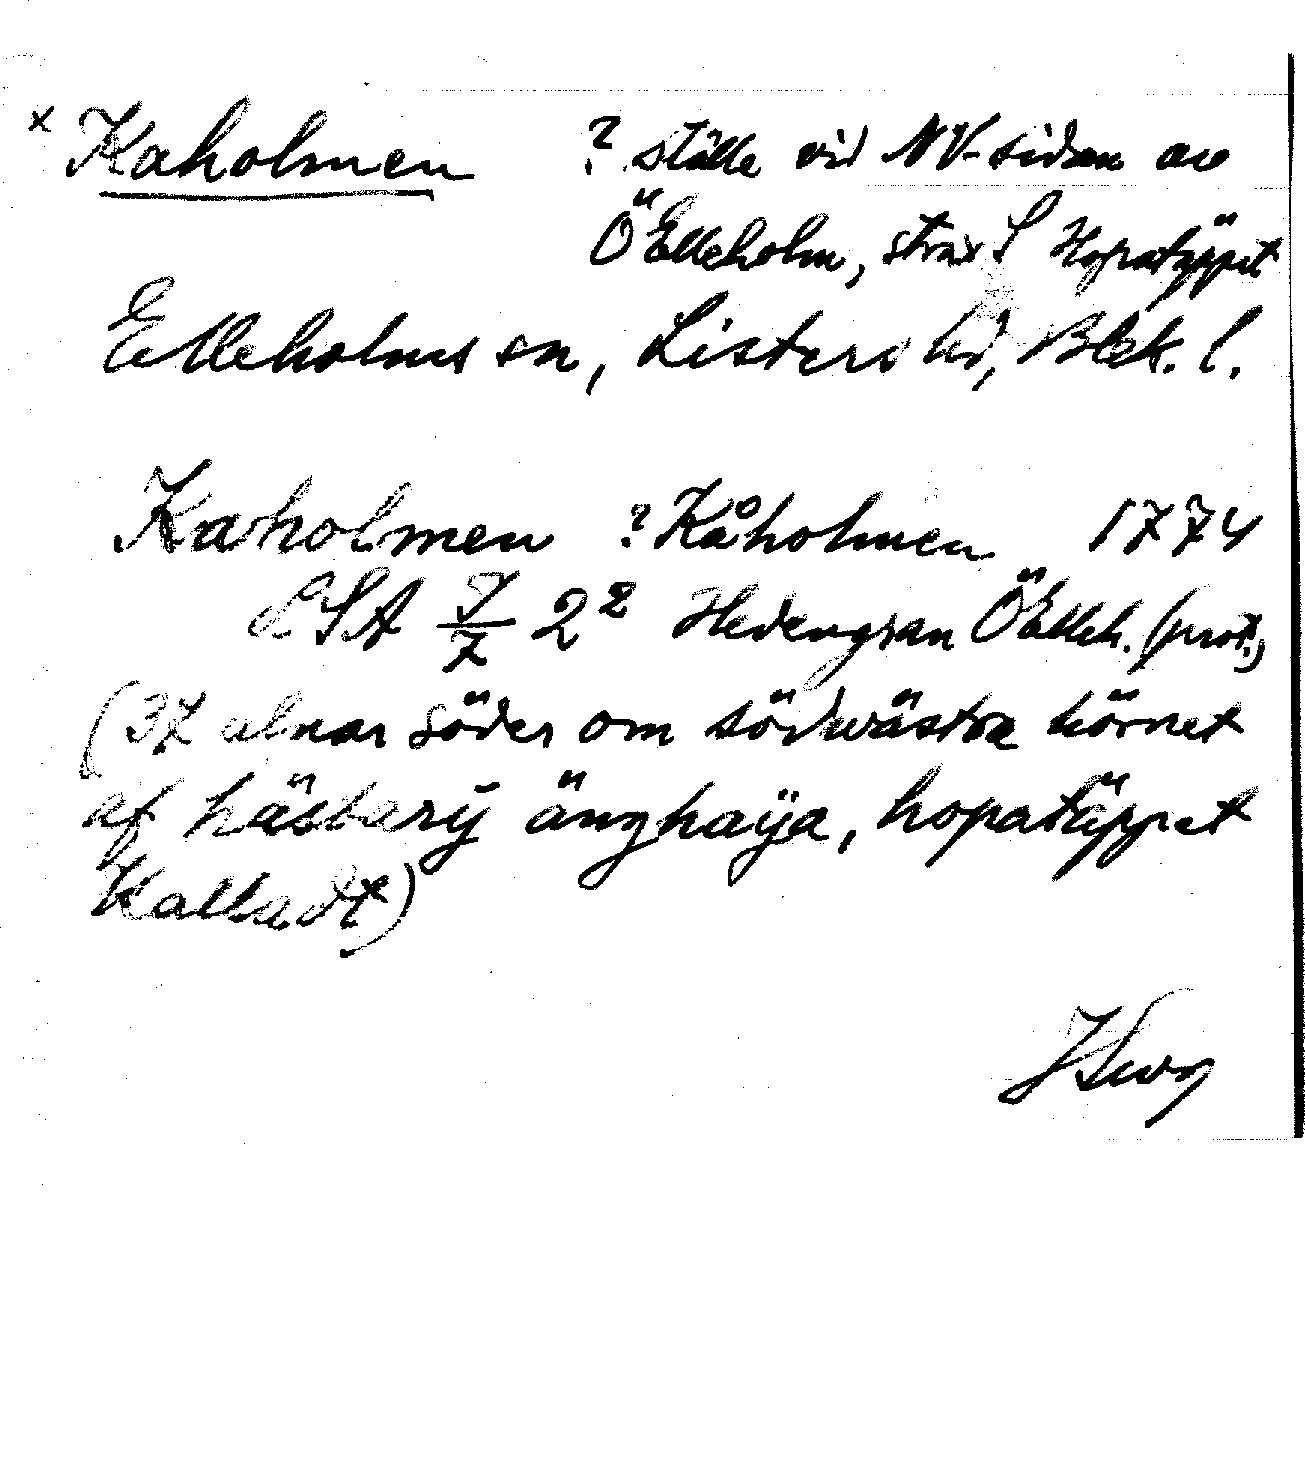 x Kaholmen ? ställe vid NV-sidan av
ÖElleholm, strax S Hopatäppet
Elleholms sn, Listers hd, Blek. l.
Kaholmen ? Kåholmen 1774
LSA 7/7 2² Hedengran ÖElleh. (prot.)
(37 alnar söder om södwästra hörnet
af hästary änghaÿa, hopatäppet
Kalladt)